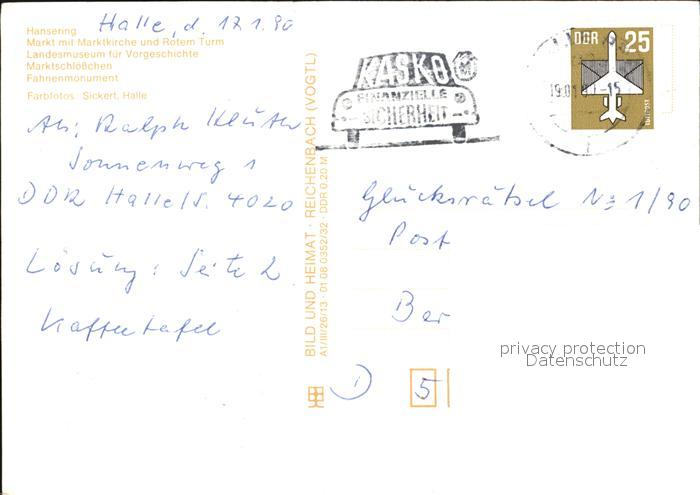 Halle, d. 17.1.90
Hansering
Markt mit Marktkirche und Rotem Turm
Landesmuseum für Vorgeschichte
Marktschlößchen
Fahnenmonument
Farbfotos: Sickert, Halle
Abs. Ralph
Sonnenweg 1
DDR Halle/S. 4020
Lösung: Seite 2
Kaffeetafel
BILD UND HEIMAT · REICHENBACH (VOGTL)
A1/III/26/13 · 01 08 0352/32 · DDR 0.20 M
KASKO
FINANZIELLE
SICHERHEIT
DDR 25
19.01
Glücksrätsel No 1/90
Post
Ber
5
privacy protection
Datenschutz